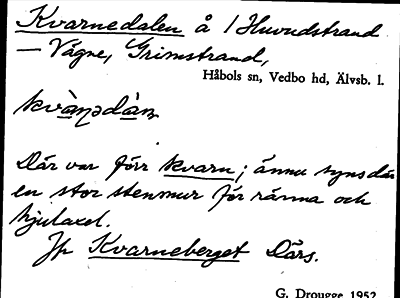 Kvarnedalen å / Huvudstrand
— Vågne, Grimstrand,
Håbols sn, Vedbo hd, Älvsb. l.
Där var förr kvarn; ännu syns där
en stor stenmur för ränna och
hjulaxel.
Jfr Kvarneberget Därs.
G. Drougge 1952